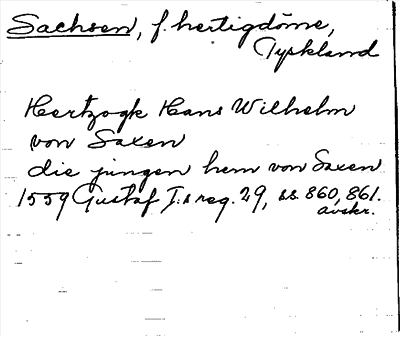 Sachsen, f. hertigdöme,
Tyskland
Hertzogk Hans Wilhelm
von Saxen
die jungen hern von Saxen
1559 Gustaf I:s reg. 29, ss. 860, 861.
avskr.